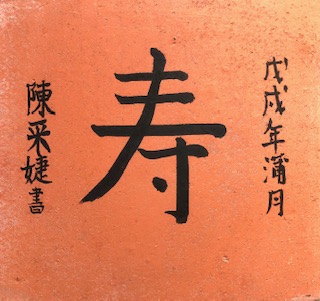 戊戌年蒲月
寿
陳采婕書